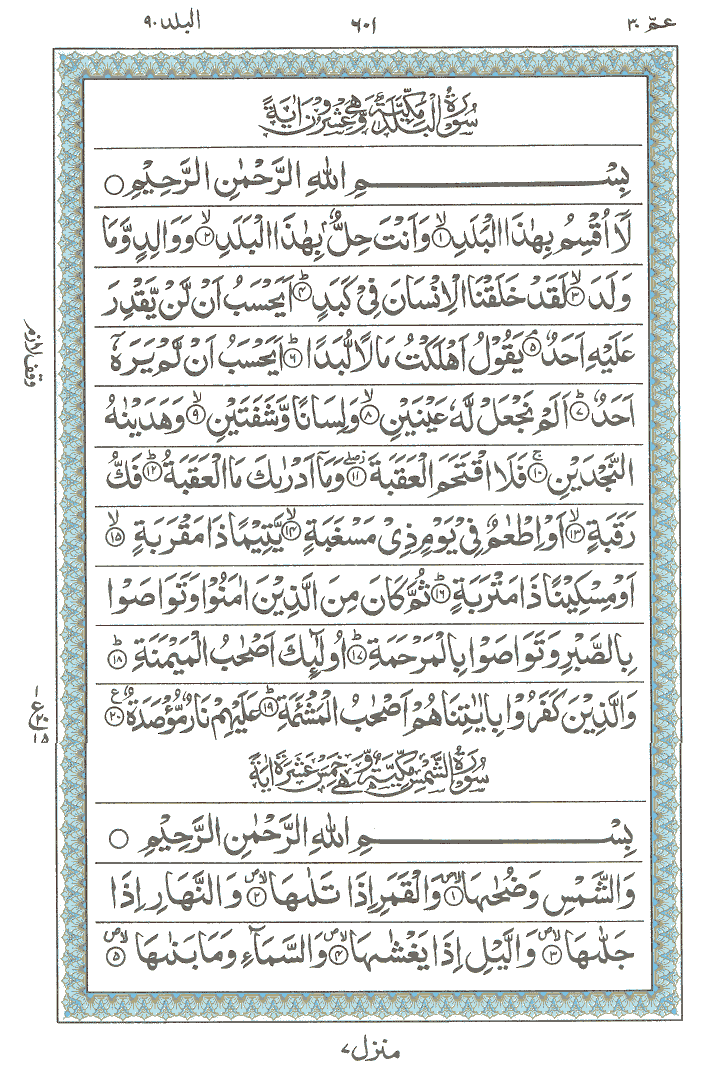 عمّ ٣٠
٦٠١
البلد ٩٠
سُوْرَةُ الْبَلَدِ مَكِّيَّةٌ وَّهِيَ عِشْرُوْنَ اٰيَةً
بِسْــــــــــــــــــمِ اللهِ الرَّحْمٰنِ الرَّحِيْمِ ○
لَآ اُقْسِمُ بِهٰذَا الْبَلَدِ ۙ﴿۱﴾ وَاَنْتَ حِلٌّۢ بِهٰذَا الْبَلَدِ ۙ﴿۲﴾ وَوَالِدٍ وَّمَا
وَلَدَ ۙ﴿۳﴾ لَقَدْ خَلَقْنَا الْاِنْسَانَ فِيْ كَبَدٍ ؕ﴿۴﴾ اَيَحْسَبُ اَنْ لَّنْ يَّقْدِرَ
عَلَيْهِ اَحَدٌ ۘ﴿۵﴾ يَقُوْلُ اَهْلَكْتُ مَالًا لُّبَدًا ؕ﴿۶﴾ اَيَحْسَبُ اَنْ لَّمْ يَرَهٗٓ
اَحَدٌ ؕ﴿۷﴾ اَلَمْ نَجْعَلْ لَّهٗ عَيْنَيْنِ ۙ﴿۸﴾ وَلِسَانًا وَّشَفَتَيْنِ ۙ﴿۹﴾ وَهَدَيْنٰهُ
النَّجْدَيْنِ ۚ﴿۱۰﴾ فَلَا اقْتَحَمَ الْعَقَبَةَ ۖ﴿۱۱﴾ وَمَآ اَدْرٰىكَ مَا الْعَقَبَةُ ؕ﴿۱۲﴾ فَكُّ
رَقَبَةٍ ۙ﴿۱۳﴾ اَوْ اِطْعٰمٌ فِيْ يَوْمٍ ذِيْ مَسْغَبَةٍ ۙ﴿۱۴﴾ يَّتِيْمًا ذَا مَقْرَبَةٍ ۙ﴿۱۵﴾
اَوْ مِسْكِيْنًا ذَا مَتْرَبَةٍ ؕ﴿۱۶﴾ ثُمَّ كَانَ مِنَ الَّذِيْنَ اٰمَنُوْا وَتَوَاصَوْا
بِالصَّبْرِ وَتَوَاصَوْا بِالْمَرْحَمَةِ ؕ﴿۱۷﴾ اُولٰٓئِكَ اَصْحٰبُ الْمَيْمَنَةِ ؕ﴿۱۸﴾
وَالَّذِيْنَ كَفَرُوْا بِاٰيٰتِنَا هُمْ اَصْحٰبُ الْمَشْـَٔمَةِ ؕ﴿۱۹﴾ عَلَيْهِمْ نَارٌ مُّؤْصَدَةٌ ﴿۲۰﴾ ع
سُوْرَةُ الشَّمْسِ مَكِّيَّةٌ وَّهِيَ خَمْسَ عَشْرَةَ اٰيَةً
بِسْــــــــــــــــــمِ اللهِ الرَّحْمٰنِ الرَّحِيْمِ ○
وَالشَّمْسِ وَضُحٰىهَا ﴿۱﴾ وَالْقَمَرِ اِذَا تَلٰىهَا ﴿۲﴾ وَالنَّهَارِ اِذَا
جَلّٰىهَا ﴿۳﴾ وَالَّيْلِ اِذَا يَغْشٰىهَا ﴿۴﴾ وَالسَّمَآءِ وَمَا بَنٰىهَا ﴿۵﴾
وقف لازم
منزل ۷